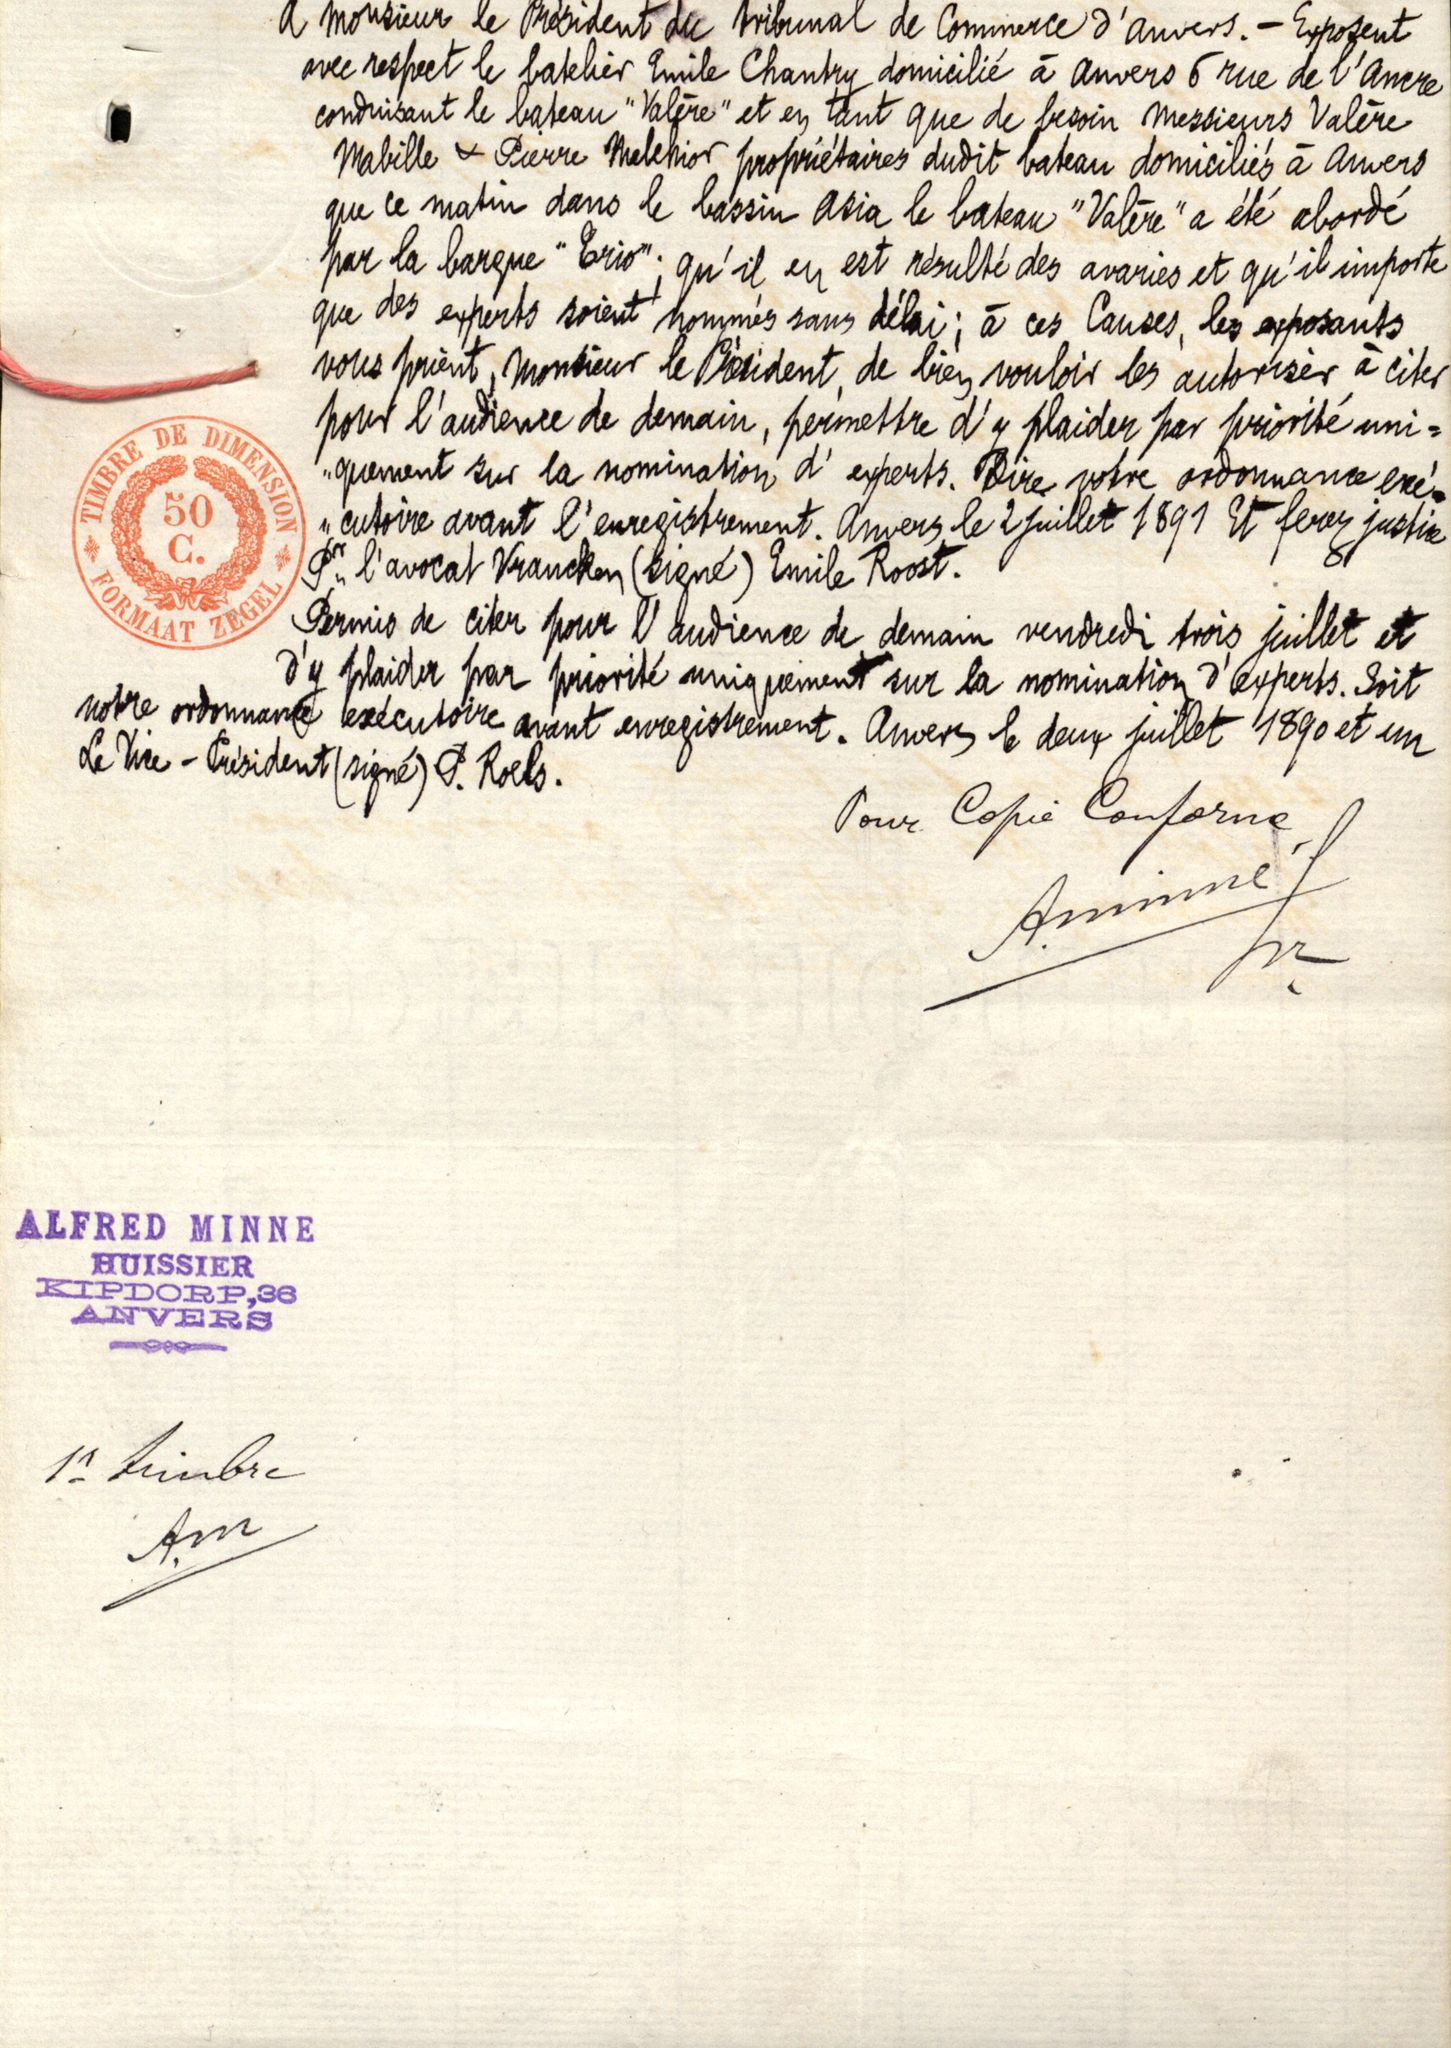 A Monsieur le Président du Tribunal de Commerce d'Anvers. – Exposent
avec respect le batelier Emile Chantry domicilié à Anvers 6 rue de l'Ancre
conduisant le bateau "Valère" et en tant que de besoin Messieurs Valère
Mabille & Pierre Melchior propriétaires dudit bateau domiciliés à Anvers
que ce matin dans le bassin Asia le bateau "Valère" a été abordé
par la barque "Erio"; qu'il en est résulté des avaries et qu'il importe
que des experts soient nommés sans délai; à ces Causes, les exposants
vous prient, Monsieur le Président, de bien vouloir les autoriser à citer
pour l'audience de demain, permettre d'y plaider par priorité uni=
"quement sur la nomination d'experts. Dire votre ordonnance exé=
"cutoire avant l'enregistrement. Anvers le 2 juillet 1891 Et ferez justice
Pr l'avocat Vrancken (signé) Emile Roost.
Permis de citer pour l'audience de demain vendredi trois juillet et
d'y plaider par priorité uniquement sur la nomination d'experts. Soit
notre ordonnance exécutoire avant enregistrement. Anvers le deux juillet 1890 et un
Le Vice – Président (signé) P. Roels.
TIMBRE DE DIMENSION
50
C.
FORMAAT ZEGEL
Pour Copie Conforme
A. Minne
ALFRED MINNE
HUISSIER
KIPDORP, 36
ANVERS
1r timbre
A.M